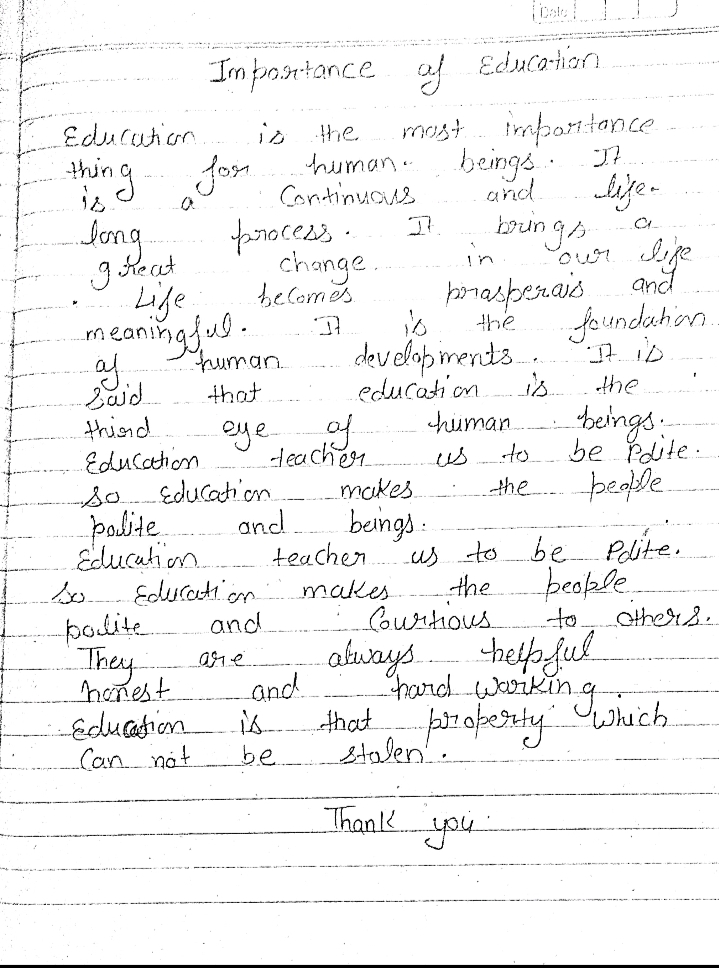 Date
Importance of Education
Education is the most importance
thing for human. beings. It
is a Continuous and life-
long process. It brings a
great change in our life
. Life becomes prosperais and
meaningful. It is the foundation
of human developments. It is
said that education is the
third eye of human beings.
Education teacher us to be Polite.
so Education makes the people
polite and beings.
Education teacher us to be Polite.
So Education makes the people
polite and Courtious to others.
They are always helpful
honest and hard working.
Education is that property which
Can not be stolen.
Thank you